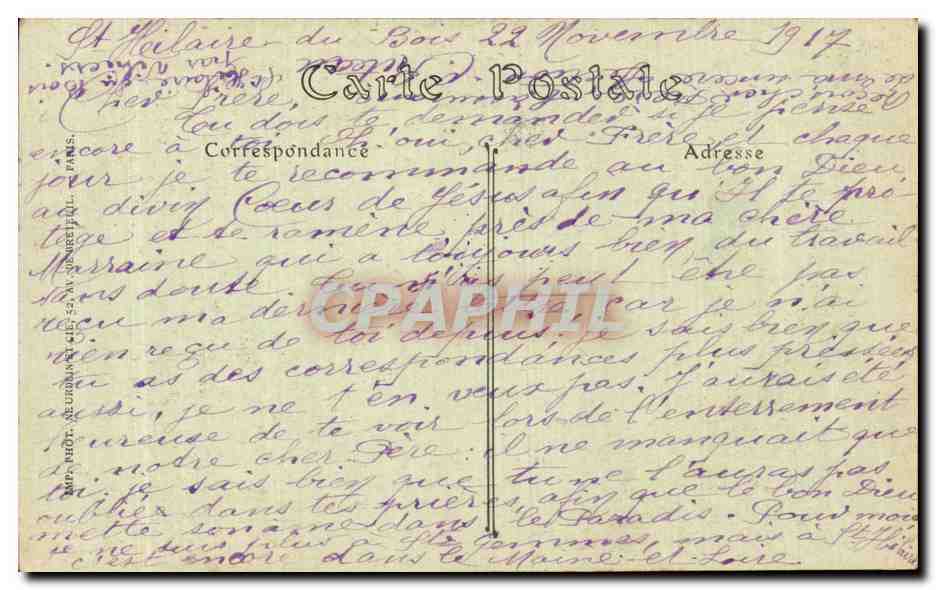 St Hilaire du Bois 22 Novembre 1917
Carte Postale
Cher Frère,
Tu dois te demander si je pense
encore à toi. oui, cher Frère et chaque
Correspondance
Adresse
jour je te recommande au bon Dieu,
au divin Cœur de Jésus afin qu'Il te pro
tège et te ramène près de ma chère
Marraine qui a toujours bien du travail
sans doute. Tu n'as peut être pas
reçu ma dernière car je n'ai
rien reçu de toi depuis. je sais bien que
tu as des correspondances plus pressées
aussi, je ne t'en veux pas. J'aurais été
heureuse de te voir lors de l'enterrement
de notre cher Père: il ne manquait que
toi. je sais bien que tu ne l'auras pas
oublié dans tes prières, afin que le bon Dieu
mette son âme dans le Paradis. Pour moi
je ne suis plus à Stes Gemmes, mais à St Hilaire
c'est encore dans le Maine-et-Loire.
St Hilaire du Bois
par Vihiers
IMP. PHOT. NEURDEIN ET CIE, 52, AV. DE BRETEUIL. PARIS.
CPAPHIL